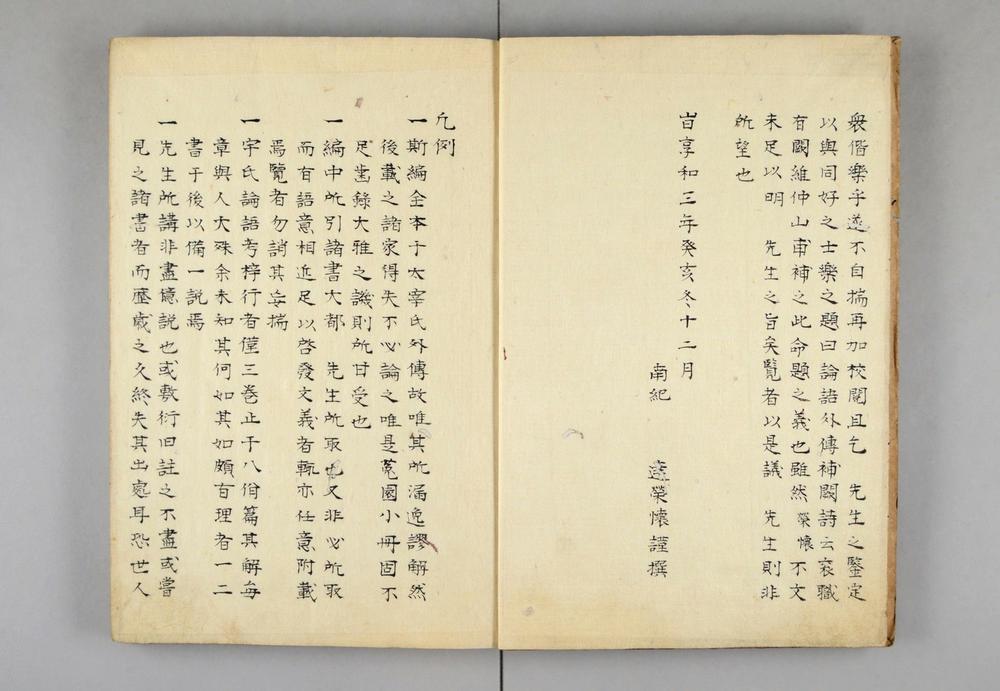 衆偕樂乎遂不自揣再加校閱且乞　先生之鑒定
以與同好之士樂之題曰論語外傳補闕詩云衮職
有闕維仲山甫補之此命題之義也雖然榮懷不文
未足以明　先生之旨矣覽者以是議　先生則非
所望也
旹享和三年癸亥冬十二月
南紀　　遠榮懷謹撰
凡例
一斯編全本于太宰氏外傳故唯其所漏逸謬解然
後載之諸家得失不必論之唯是菟園小冊固不
足啚錄大雅之譏則所甘受也
一編中所引諸書大都　先生所取也又非必所取
而有語意相近足以啓發文義者輒亦任意附載
焉覽者勿誚其妄揣
一宇氏論語考梓行者僅三卷止于八佾篇其解每
章與人大殊余未知其何如其如頗有理者一二
書于後以備一説焉
一先生所講非盡憶説也或敷衍旧註之不盡或嘗
見之諸書者而歷歲之久終失其出處耳恐世人